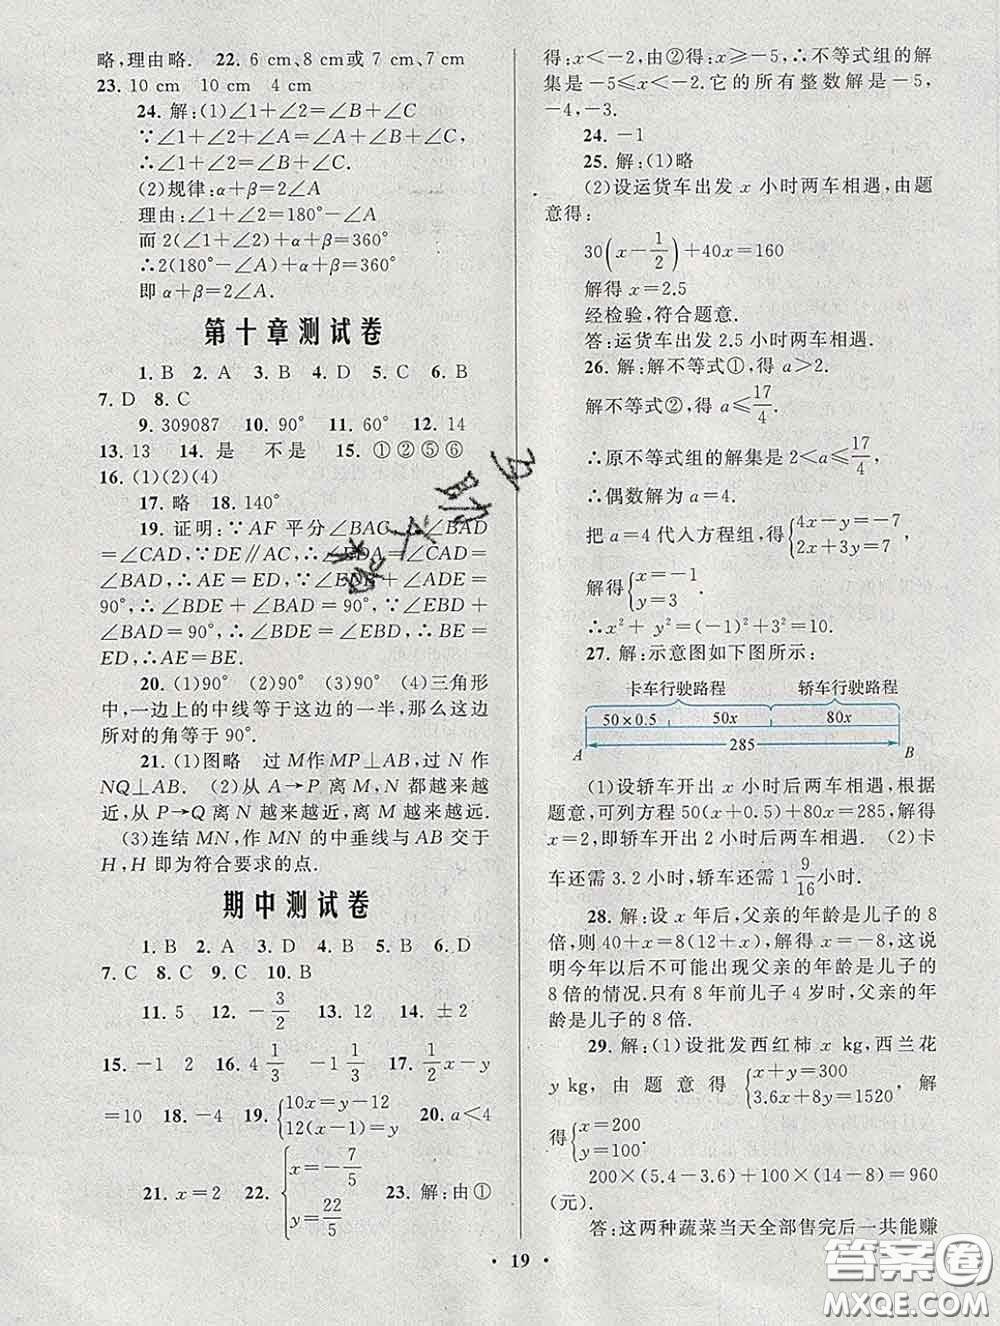 略,理由略. 22. 6 cm、8 cm或 7 cm、7 cm
23. 10 cm 10 cm 4 cm
24. 解:(1)∠1+∠2=∠B+∠C
∵∠1+∠2+∠A=∠A+∠B+∠C,
∴∠1+∠2=∠B+∠C.
(2)规律:α+β=2∠A
理由:∠1+∠2=180°-∠A
而 2(∠1+∠2)+α+β=360°
∴2(180°-∠A)+α+β=360°
即 α+β=2∠A.
第十章测试卷
1. B 2. A 3. B 4. D 5. C 6. B
7. D 8. C
9. 309087 10. 90° 11. 60° 12. 14
13. 13 14. 是 不是 15. ①②⑤⑥
16. (1)(2)(4)
17. 略 18. 140°
19. 证明:∵AF 平分∠BAC,∴∠BAD
=∠CAD,∵DE∥AC,∴∠EDA=∠CAD
=∠BAD,∴AE=ED,∵∠BDE+∠EDA=
90°,∴∠BDE+∠BAD=90°,∵∠EBD+
∠BAD=90°,∴∠BDE=∠EBD,∴BE=
ED,∴AE=BE.
20. (1)90° (2)90° (3)90° (4)三角形
中,一边上的中线等于这边的一半,那么这边
所对的角等于 90°.
21. (1)图略 过 M作 MP⊥AB,过 N 作
NQ⊥AB. (2)从 A→P 离 M、N 都越来越
近,从 P→Q 离 N 越来越近,离 M 越来越远.
(3)连结 MN,作 MN 的中垂线与 AB 交于
H,H 即为符合要求的点.
期中测试卷
1. B 2. A 3. D 4. B 5. C 6. D
7. C 8. C 9. C 10. B
11. 5 12. -3/2 13. 3/2 14. ±2
15. -1 2 16. 4 1/3 -1 1/3 17. 1/2 x-y
=10 18. -4 19. {10x=y-12 12(x-1)=y 20. a<4
21. x=2 22. {x=-7/5 y=22/5 23. 解:由①
得:x<-2,由②得:x≥-5,∴不等式组的解
集是-5≤x<-2.它的所有整数解是-5,
-4,-3.
24. -1
25. 解:(1)略
(2)设运货车出发 x 小时两车相遇,由题
意得:
30(x-1/2)+40x=160
解得 x=2.5
经检验,符合题意.
答:运货车出发 2.5 小时两车相遇.
26. 解:解不等式①,得 a>2.
解不等式②,得 a≤17/4.
∴原不等式组的解集是 2<a≤17/4.
∴偶数解为 a=4.
把 a=4 代入方程组,得{4x-y=-7 2x+3y=7,
解得{x=-1 y=3.
∴x²+y²=(-1)²+3²=10.
27. 解:示意图如下图所示:
卡车行驶路程 轿车行驶路程
50×0.5 50x 80x
A 285 B
(1)设轿车开出 x 小时后两车相遇,根据
题意,可列方程 50(x+0.5)+80x=285,解得
x=2,即轿车开出 2 小时后两车相遇. (2)卡
车还需 3.2 小时,轿车还需 1 9/16小时.
28. 解:设 x 年后,父亲的年龄是儿子的 8
倍,则 40+x=8(12+x),解得 x=-8,这说
明今年以后不可能出现父亲的年龄是儿子的
8 倍的情况.只有 8 年前儿子 4 岁时,父亲的年
龄是儿子的 8 倍.
29. 解:(1)设批发西红柿 x kg,西兰花
y kg,由题意得{x+y=300 3.6x+8y=1520,解
得{x=200 y=100.
200×(5.4-3.6)+100×(14-8)=960
(元).
答:这两种蔬菜当天全部售完后一共能赚
• 19 •
答案卷
MXQE.COM